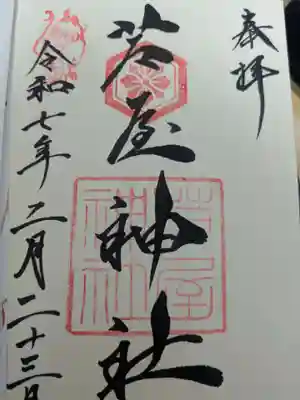 奉拝
芦屋神社
令和七年二月二十三日
芦屋神社